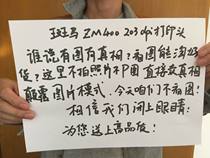 斑马ZM400 203dpi打印头
谁说有图有真相？看图能淘好
货？这里不拍照片不P图 直接放真相
颠覆图片模式，今天咱们不看图！
相信我们闭上眼睛！
为您送上高品质！